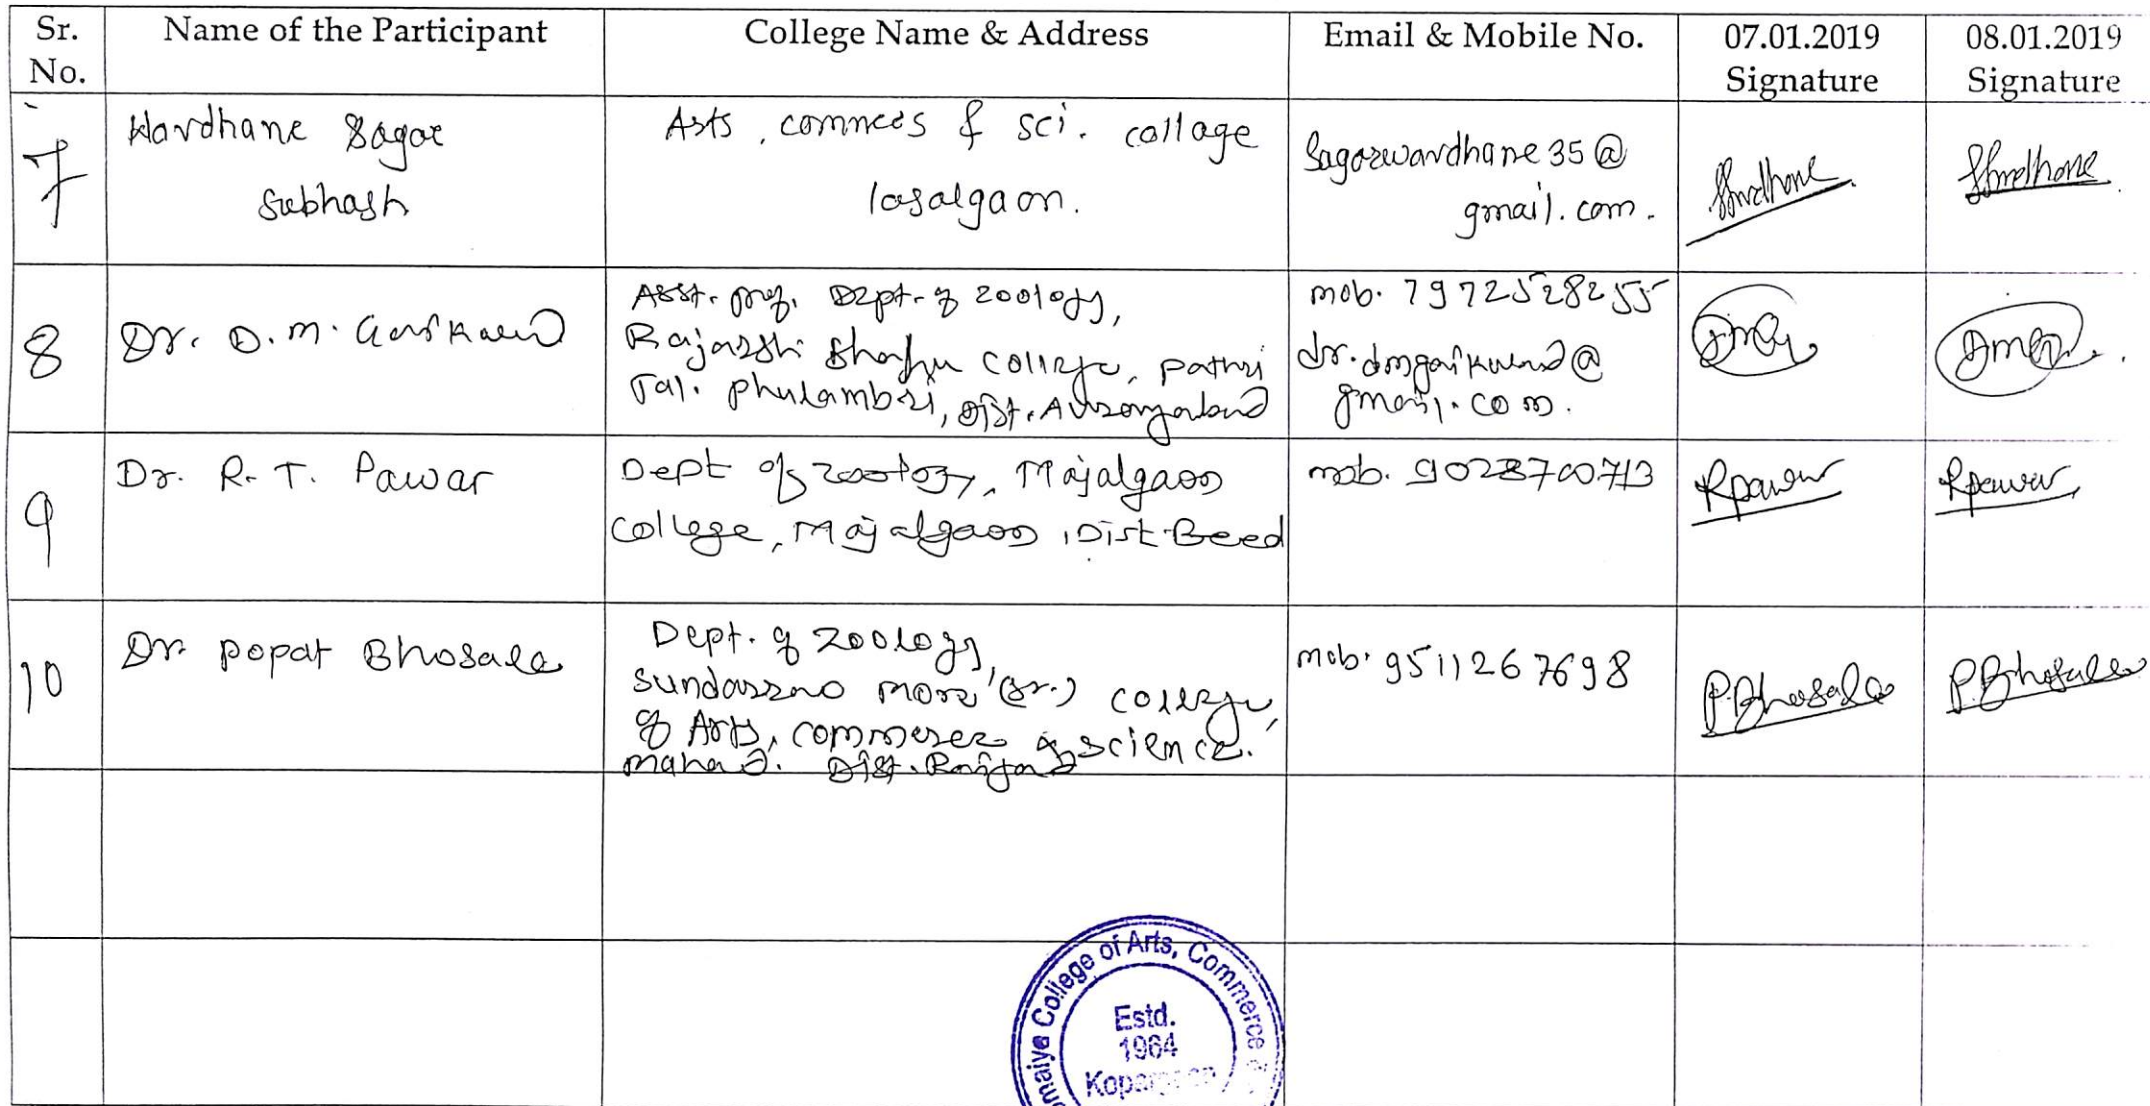 Sr. No. Name of the Participant College Name & Address Email & Mobile No. 07.01.2019 Signature 08.01.2019 Signature
7
Wardhane Sagar
Subhash
Arts, commees & sci. collage
lasalgaon.
Sagarwardhane35@
gmail.com.
8
Dr. D.M. Gaikawad
Asst. prof. Dept. of zoology,
Rajarshi Shahu College, pathri
Tal. Phulambri, Dist. Aurangabad
mob. 7972528255
dr.dmgaikwad@
gmail.com.
9
Dr. R.T. Pawar
Dept of zoology, Majalgaon
College, Majalgaon, Dist-Beed
mob. 9028700713
Rpawar
Rpawar
10
Dr. Popat Bhosale
Dept. of zoology,
sundarrao more (Sr.) college,
of Arts, commerce & science.
mahad. Dist. Raigad
mob. 9511267698
P.Bhosale
P.Bhosale
maiya College of Arts, Commerce
Estd.
1964